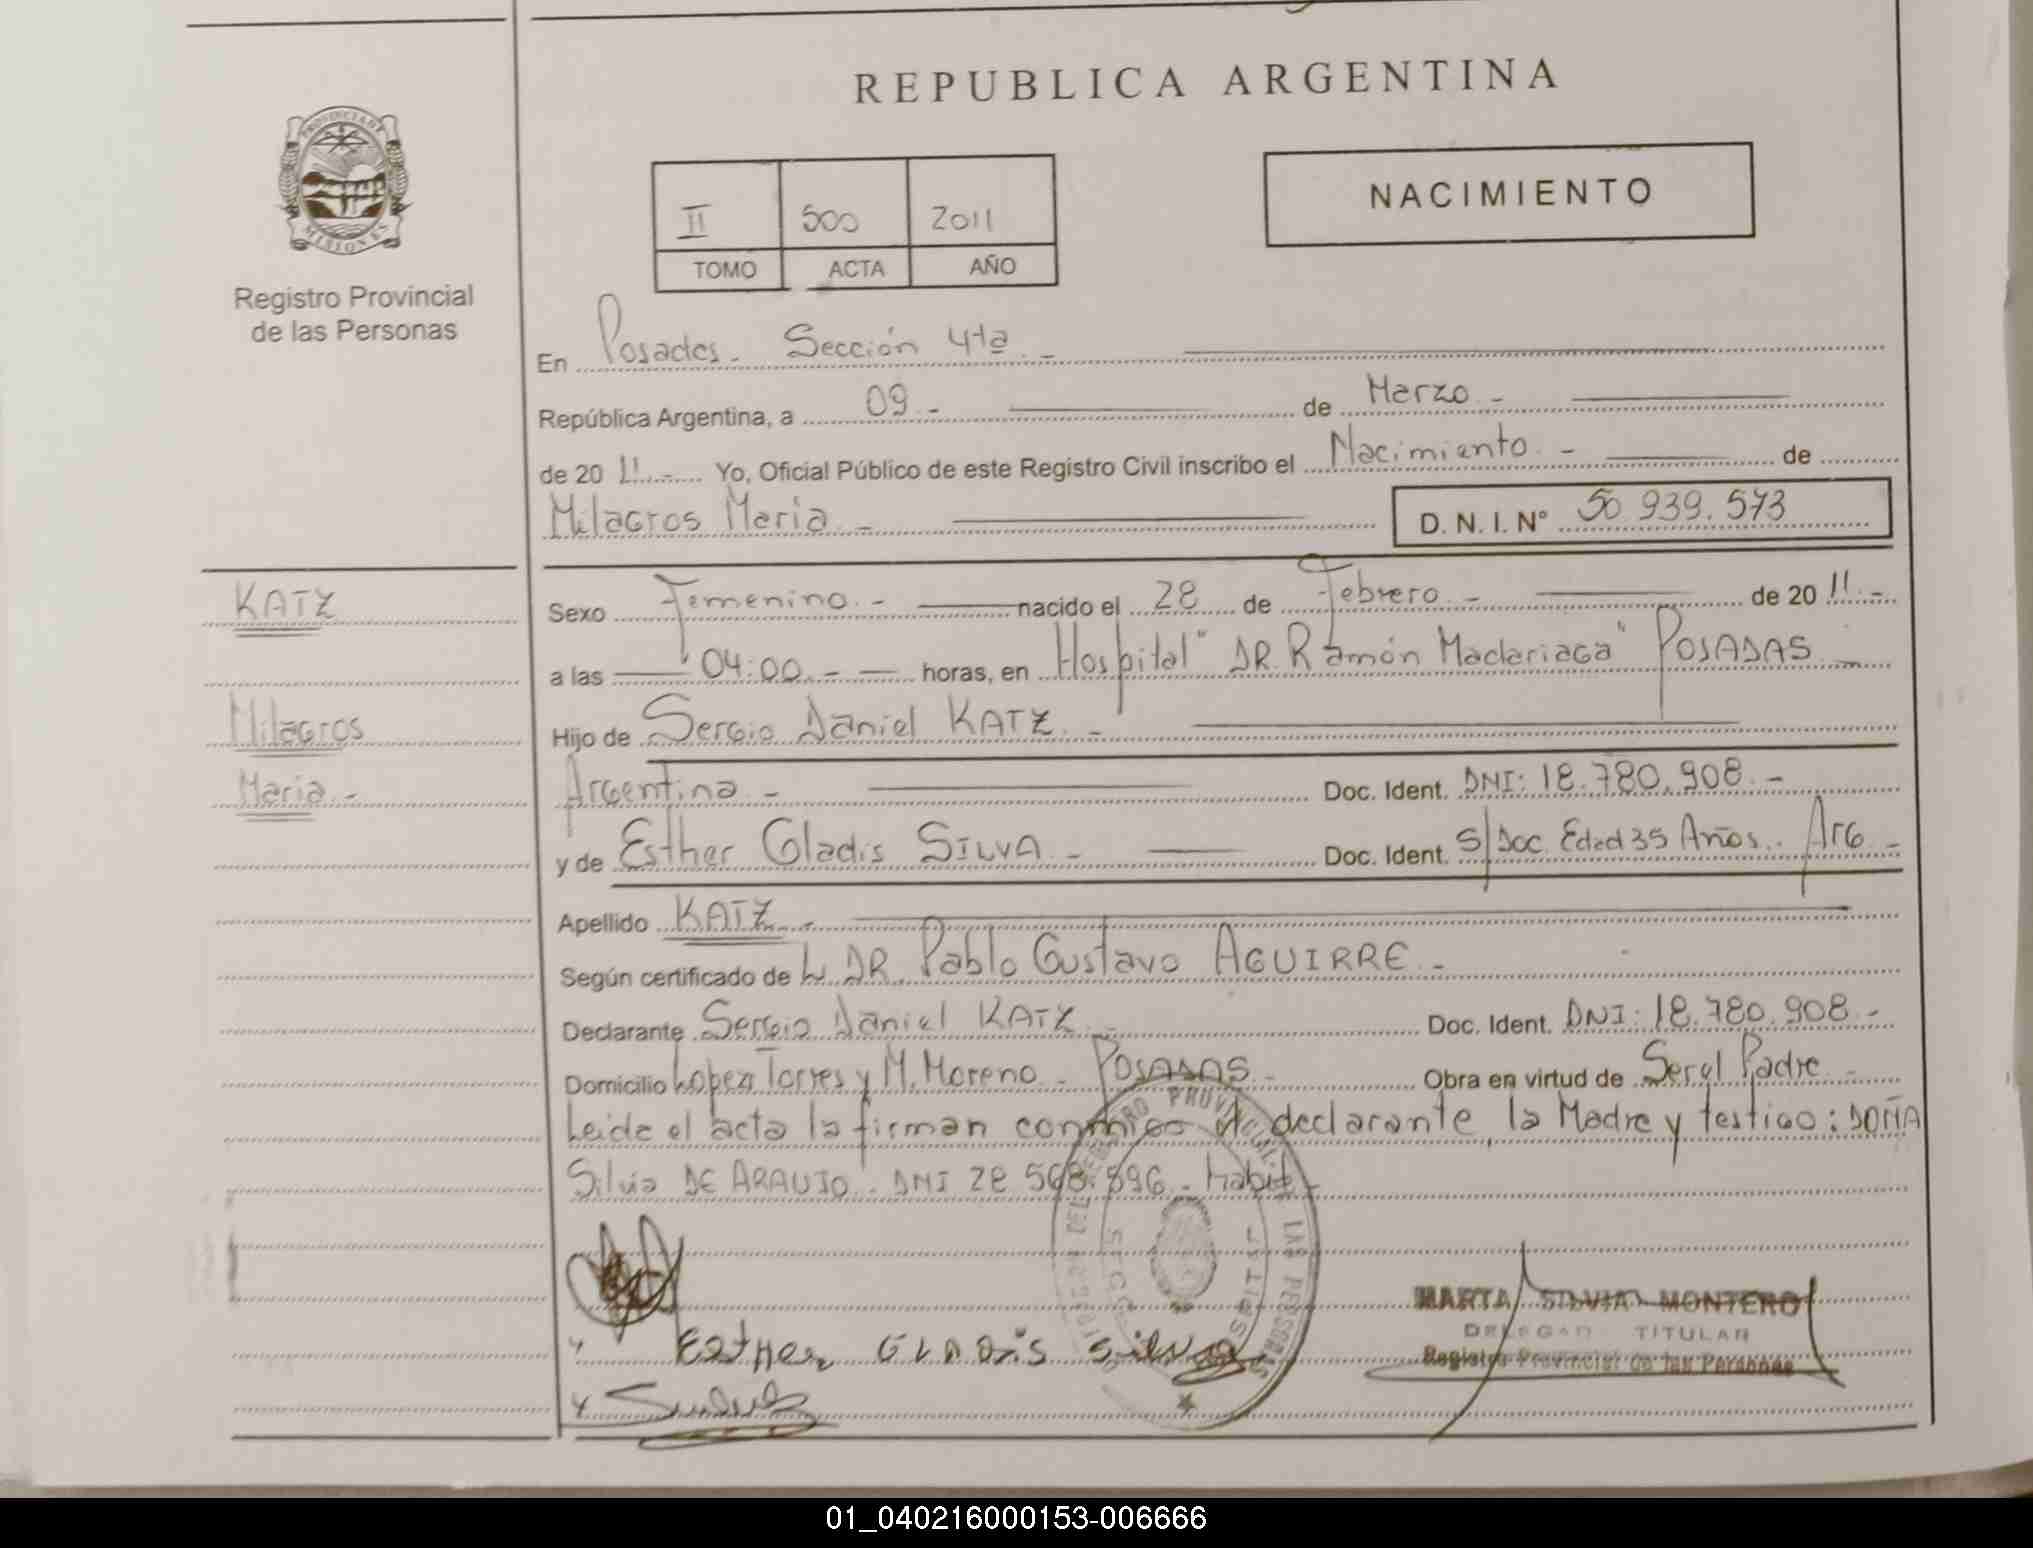 REPUBLICA ARGENTINA
PROVINCIA DE
MISIONES
Registro Provincial
de las Personas
II 500 2011
TOMO ACTA AÑO
NACIMIENTO
En Posadas - Sección 4ta -
República Argentina, a 09 - de Marzo -
de 20 11.- Yo, Oficial Público de este Registro Civil inscribo el Nacimiento - de
Milagros Maria - D. N. I. Nº 50.939.573
KATZ
Milagros
Maria -
Sexo Femenino - nacido el 28 de Febrero - de 20 11.-
a las 04:00 - horas, en Hospital "DR. Ramón Madariaga" POSADAS
Hijo de Sergio Daniel KATZ -
Argentina - Doc. Ident. DNI: 18.780.908 -
y de Esther Gladis SILVA - Doc. Ident. S/Doc. Edad 35 Años. Arg -
Apellido KATZ -
Según certificado de L. DR. Pablo Gustavo AGUIRRE -
Declarante Sergio Daniel KATZ - Doc. Ident. DNI: 18.780.908 -
Domicilio Lopez Torres y M. Moreno - POSADAS - Obra en virtud de Ser el Padre -
Leida el acta la firman conmigo el declarante, la Madre y testigo: DOÑA
Silvia DE ARAUJO - DNI 28.568.896 - habil -
Esther GLADIS Silva
MARTA SILVIA MONTERO
DELEGAD TITULAR
Registro Provincial de las Personas
DEL REGISTRO PROVINCIAL DE LAS PERSONAS
01_040216000153-006666